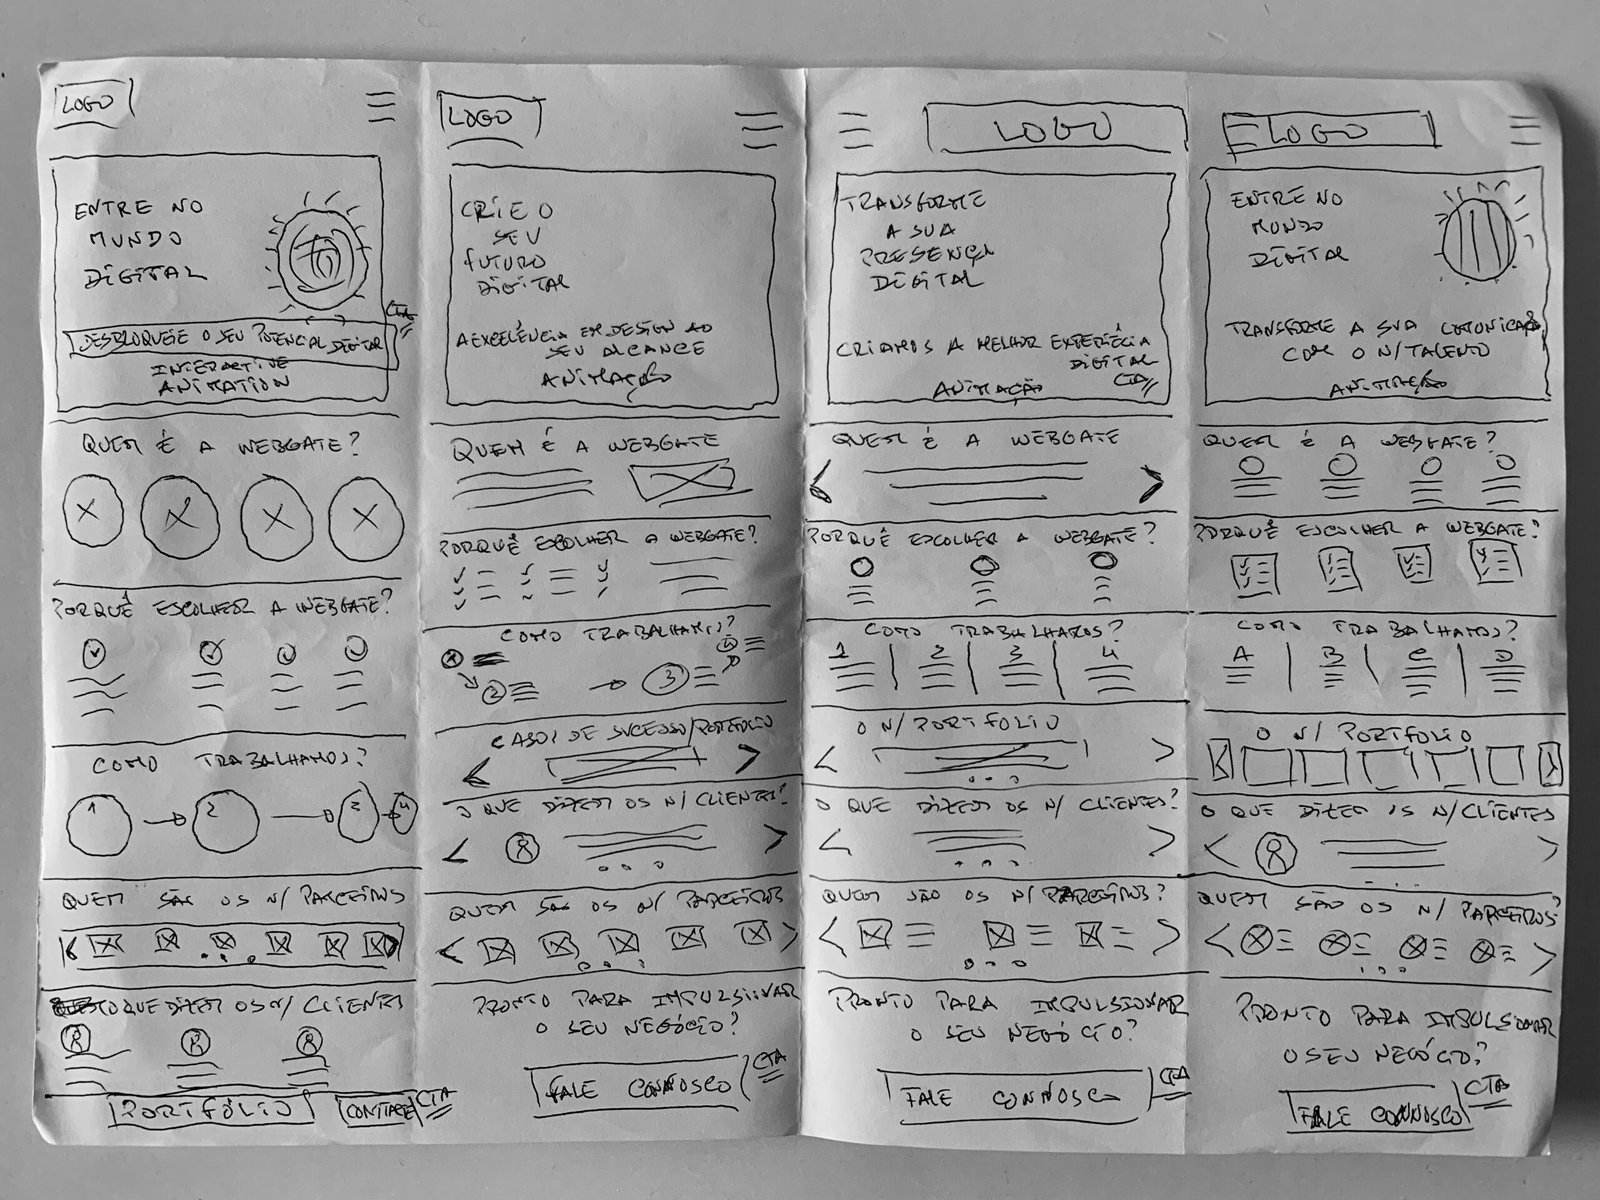 LOGO
ENTRE NO
MUNDO
DIGITAL
CTA
DESBLOQUEIE O SEU POTENCIAL DIGITAL
INTERACTIVE
ANIMATION
QUEM É A WEBGATE?
PORQUÊ ESCOLHER A WEBGATE?
COMO TRABALHAMOS?
1
2
3
4
QUEM SÃO OS N/ PARCEIROS
O QUE DIZEM OS N/ CLIENTES
PORTFÓLIO
CTA
LOGO
CRIE O
SEU
FUTURO
DIGITAL
A EXCELÊNCIA EM DESIGN AO
SEU ALCANCE
ANIMAÇÃO
QUEM É A WEBGATE
PORQUÊ ESCOLHER A WEBGATE?
COMO TRABALHAMOS?
2
3
CASOS DE SUCESSO/PORTFOLIO
O QUE DIZEM OS N/ CLIENTES?
QUEM SÃO OS N/ PARCEIROS
PRONTO PARA IMPULSIONAR
O SEU NEGÓCIO?
CTA
FALE CONNOSCO
LOGO
TRANSFORME
A SUA
PRESENÇA
DIGITAL
CRIAMOS A MELHOR EXPERIÊCIA
DIGITAL
ANIMAÇÃO
CTA
QUEM É A WEBGATE
PORQUÊ ESCOLHER A WEBGATE?
COMO TRABALHAMOS?
1 2 3 4
O N/ PORTFOLIO
O QUE DIZEM OS N/ CLIENTES?
QUEM SÃO OS N/ PARCEIROS?
PRONTO PARA IMPULSIONAR
O SEU NEGÓCIO?
CTA
FALE CONNOSCO
LOGO
ENTRE NO
MUNDO
DIGITAL
TRANSFORME A SUA COMUNICAÇÃO
COM O N/TALENTO
ANIMAÇÃO
QUEM É A WEBGATE?
PORQUÊ ESCOLHER A WEBGATE?
COMO TRABALHAMOS?
A B C D
O N/ PORTFOLIO
O QUE DIZEM OS N/CLIENTES
QUEM SÃO OS N/ PARCEIROS?
PRONTO PARA IMPULSIONAR
O SEU NEGÓCIO?
CTA
FALE CONNOSCO